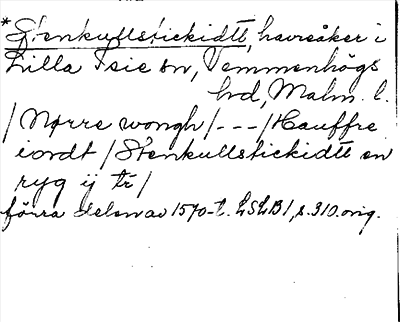 *Stenkullstickidtt, havreåker i
Lilla Isie sn, Vemmenhögs
hd, Malm. l.
/Nørre wongh/---/Hauffre
iordt/Stenkullstickidtt en
ryg ij tr/
förra delen av 1570-t. LSLB1, s. 310. orig.